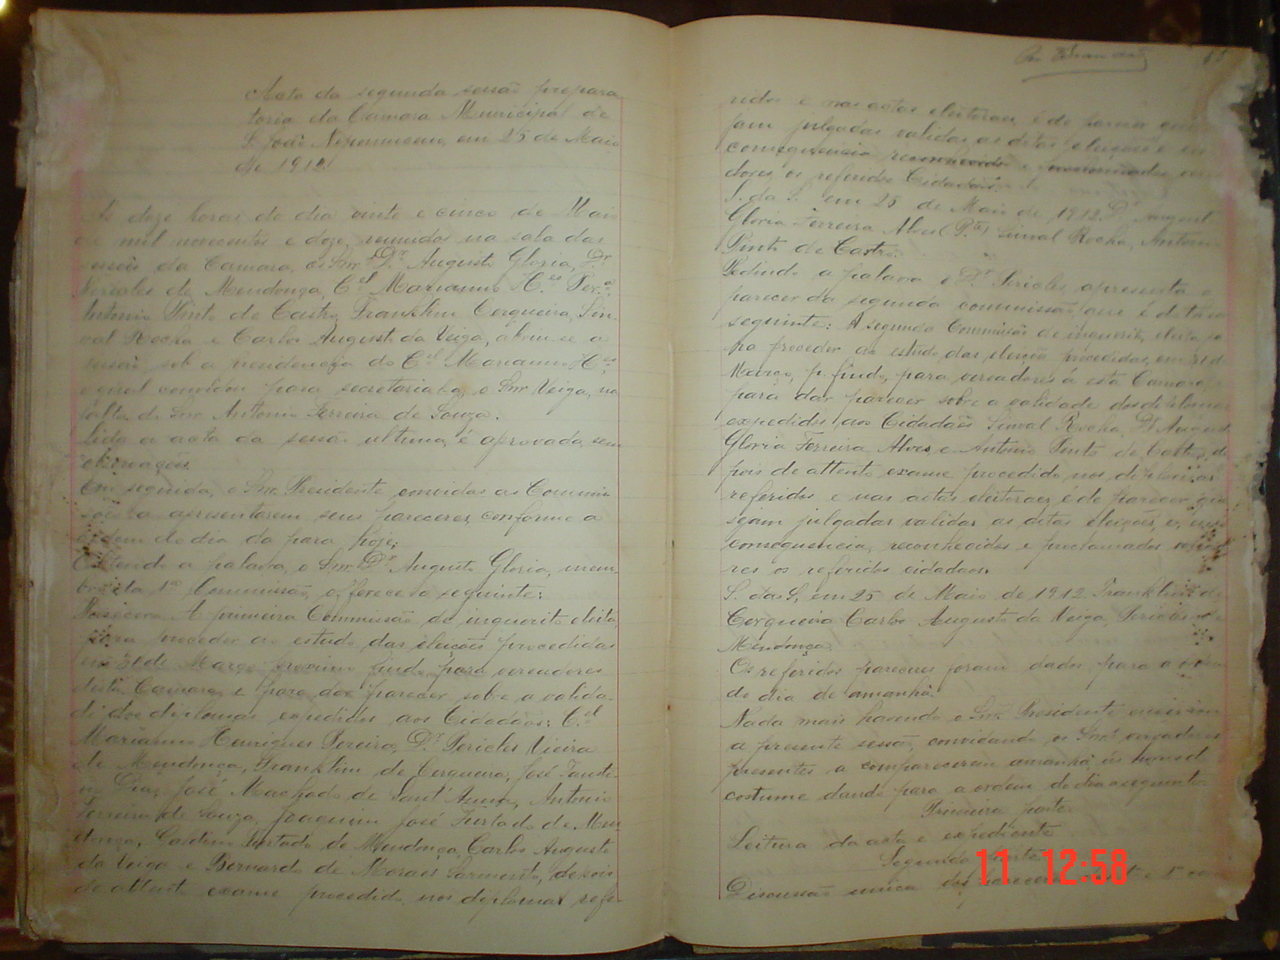 Acta da segunda sessão prepara
toria da Camara Municipal de
S. João Nepomuceno, em 25 de Maio
de 1912.
As doze horas do dia vinte e cinco de Maio
de mil novecentos e doze, reunidos na sala das
sessões da Camara, os Snrs. Dr. Augusto Gloria, Dr.
Pericles de Mendonça, Cel. Marianno H.es Per.a
Antonio Pinto de Castro, Franklin Cerqueira, Sin
val Rocha e Carlos Augusto da Veiga, abriu-se a
sessão sob a presidencia do Cel. Marianno H.es
o qual convidou para secretarial-a, o Snr. Veiga, na
falta do Snr. Antonio Ferreira de Souza.
Lida a acta da sessão ultima, é aprovada sem
observações.
Em seguida, o Snr. Presidente convida as Commis
sões a apresentarem seus pareceres, conforme a
ordem do dia da para hoje.
Obtendo a palavra, o Snr. Dr. Augusto Gloria, mem
bro da 1a Commissão, offerece o seguinte:
Parecer. A primeira Commissão de inquerito eleita
para proceder ao estudo das eleições procedidas
em 31 de Março proximo findo para vereadores
desta Camara, e para dar parecer sobre a valida-
de dos diplomas expedidos aos Cidadãos: Cel.
Marianno Henriques Pereira, Dr. Pericles Vieira
de Mendonça, Franklin de Cerqueira, José Fausti-
no Dias, José Machado de Sant'Anna, Antonio
Ferreira de Souza, Joaquim José Furtado de Men
donça, Furtado de Mendonça, Carlos Augusto
da Veiga e Bernardo de Moraes Sarmento, depois
de attento exame procedido nos diplomas refe
65
ridos e nas actas eleitoraes, é de parecer que
sejam julgadas validas as ditas eleições e em
consequencia reconhecidos e proclamados verea
dores os referidos Cidadãos.
S. da S. em 25 de Maio de 1912. Dr. Augusto
Gloria Ferreira Alves, Sinval Rocha, Antonio
Pinto de Castro.
Pedindo a palavra o Dr. Pericles, apresenta o
parecer da segunda commissão, que é do teor
seguinte: A segunda Commissão de inquerito, eleita
pa proceder ao estudo das eleições procedidas, em 31 de
Março, p. findo, para vereadores á esta Camara e
para dar parecer sobre a validade dos diplomas
expedidos aos Cidadãos Sinval Rocha, Dr. Augusto
Gloria Ferreira Alves e Antonio Pinto de Castro, de
pois de attento exame procedido nos diplomas
referidos e nas actas eleitoraes, é de parecer que
sejam julgadas validas as ditas eleições, e, em
consequencia, reconhecidos e proclamados vereado
res os referidos cidadãos.
S. das S., em 25 de Maio de 1912. Franklin de
Cerqueira, Carlos Augusto da Veiga, Pericles de
Mendonça.
Os referidos pareceres foram dados para a ordem
do dia de amanhã.
Nada mais havendo o Snr. Presidente encerrou
a presente sessão, convidando os Snrs. vereadores
presentes a comparecerem amanhã ás horas do
costume dando para a ordem do dia seguinte
Primeira parte
Leitura da acta e expediente
Segunda parte
Discussão unica dos pareceres
11 12:58